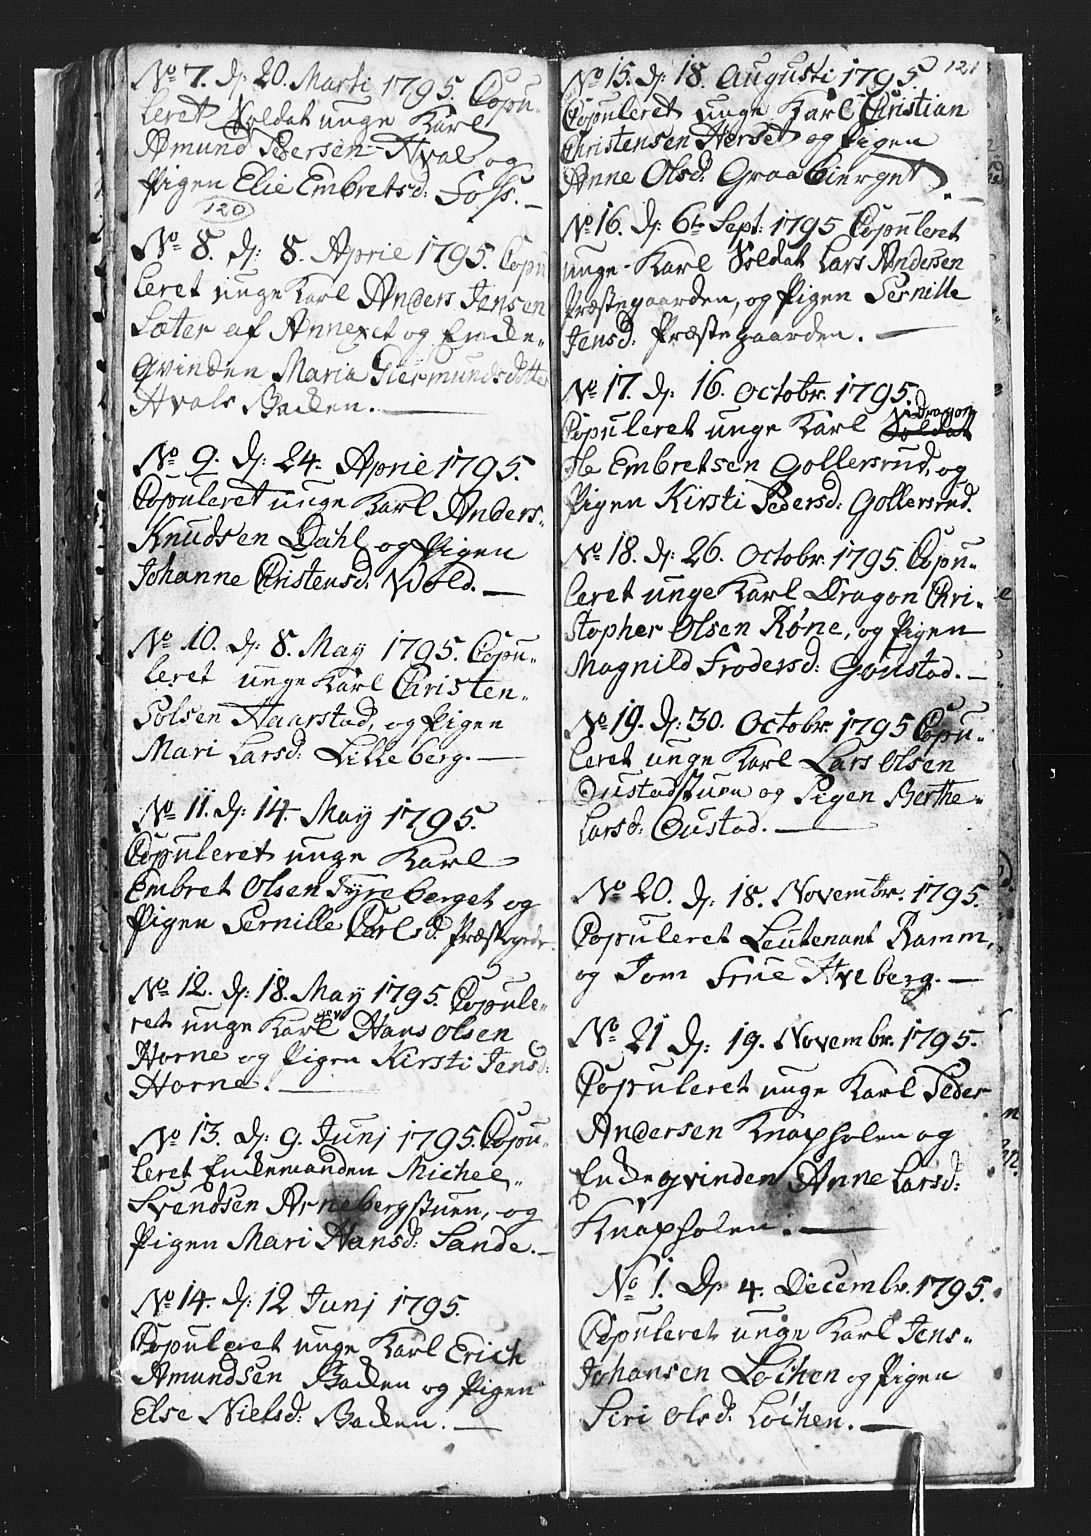 No 7. d: 20. Marti 1795. Copu-
leret Soldat unge Karl
Amund Pedersen Hval og
Pigen Elie Embretsd: Foss. —
120
No 8. d: 8. Aprie 1795. Copu
leret unge Karl Anders Jensen
Sæter af Annexet og Encke-
Qvinden Maria Giermundsdotter
Hvals Backen. —
No 9. d: 24. Aprie 1795.
Copuleret unge Karl Anders-
Knudsen Dahl og Pigen
Johanne Christensd: Wold. —
No 10. d: 8. May 1795. Copu-
leret unge Karl Christen-
Polsen Haarstad, og Pigen
Mari Larsd: Lilleberg. —
No 11. d: 14. May 1795.
Copuleret unge Karl
Embret Olsen Tyreberget og
Pigen Pernille Carlsd: Præstegrdr
No 12. d: 18. May 1795. Copule-
ret unge Karl Hans Olsen
Horne og Pigen Kirsti Jensd:
Horne. —
No 13. d: 9. Junj 1795. Copu-
leret Enckemanden Michel-
Svendsen Arnebergstuen, og
Pigen Mari Hansd: Sande. —
No 14. d: 12 Junj 1795.
Copuleret unge Karl Erich
Amundsen Backen og Pigen
Else Nielsd: Backen. —
121
No 15. d: 18. Augusti 1795
Copuleret unge Karl Christian
Christensen Herset og Pigen
Anne Olsd: Graabierget. —
No 16. d: 6te Sept: 1795 Copuleret
unge Karl Soldat Lars Andersen
Præstegaarden, og Pigen Pernille
Jensd: Præstegaarden. —
No 17. d: 16. Octobr. 1795.
Dragon
Copuleret unge Karl Soldat
Ole Embretsen Gollersrud, og
Pigen Kirsti Pedersd: Gollersrud.
No 18. d: 26. Octobr. 1795. Copu-
leret unge Karl Dragon Chri-
stopher Olsen Røne, og Pigen
Magnild Frodersd: Gonstad. —
No 19. d: 30. Octobr. 1795 Copu-
leret unge Karl Lars Olsen
Oustadstuen og Pigen Berthe-
Larsd: Oustad. —
No 20. d: 18. Novembr. 1795.
Copuleret Leutenant Ramm,
og Jom Frue Hveberg. —
No 21 d: 19. Novembr. 1795.
Copuleret unge Karl Peder
Andersen Knapholen og
Enckeqvinden Anne Larsd:
Knapholen. —
No 1. d: 4. Decembr. 1795.
Copuleret unge Karl Jens-
Johansen Løchen og Pigen
Siri Olsd: Løchen. —